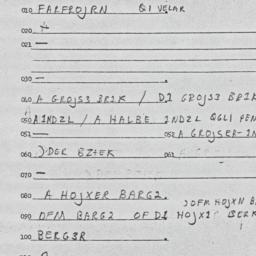 010 FARFROJRN QI VELAR
020 +
021 —
030 —
040 A GROJS3 BRIK / DI GROJS3 BRIK
050 A INDZL / A HALBE INDZL QGLI
051 — 052 A GROJSER-IN
060 J-DER BZ+EK 061
070 —
080 A HOJXER BARG2. JOFM HOJXN B
090 OFM BARG2 OF DI HOJX2
100 BERG3R